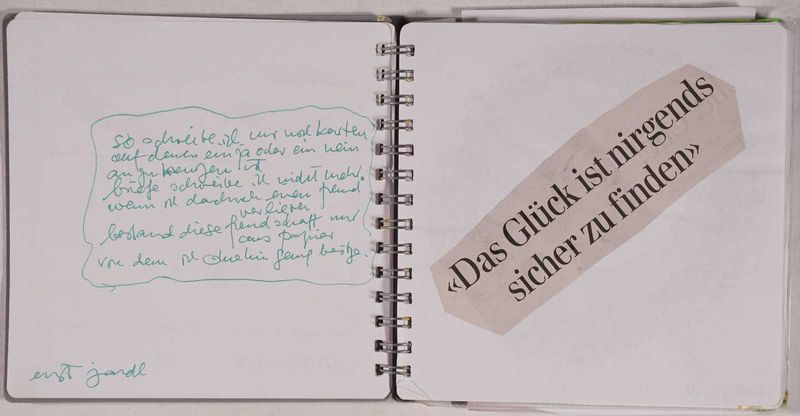 so schreibe ich nur noch karten
auf denen ein ja oder ein nein
anzukreuzen ist
briefe schreibe ich nicht mehr.
wenn ich dadurch einen freund
verliere
bestand diese freundschaft nur
aus papier
von dem ich ohnehin genug besitze.
ernst jandl
«Das Glück ist nirgends
sicher zu finden»